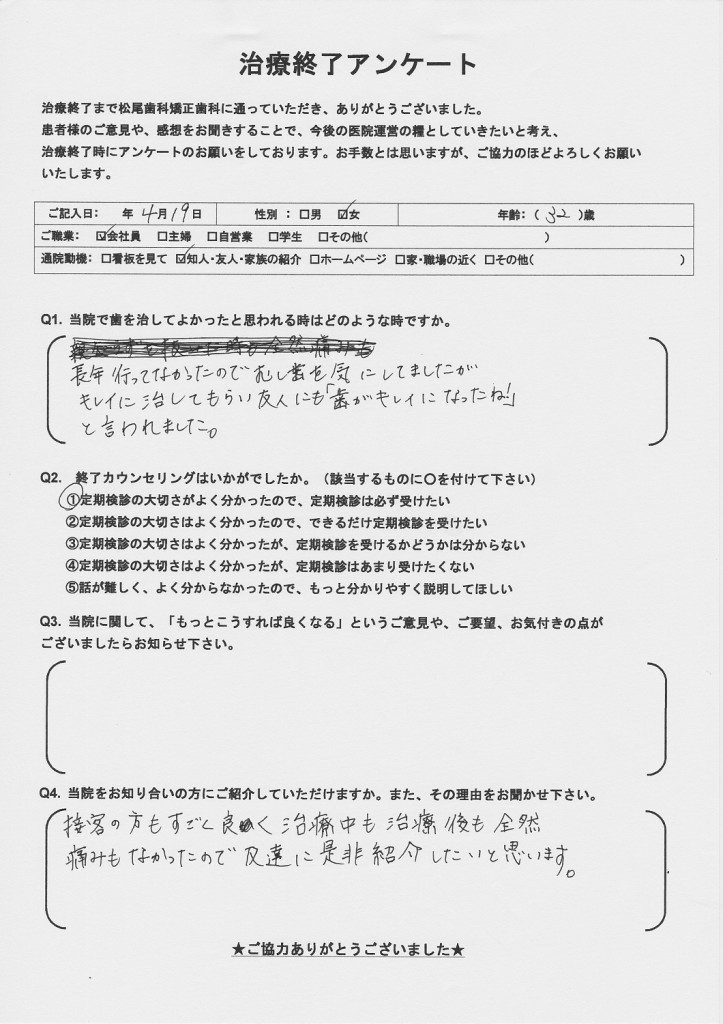 治療終了アンケート
治療終了まで松尾歯科矯正歯科に通っていただき、ありがとうございました。
患者様のご意見や、感想をお聞きすることで、今後の医院運営の糧としていきたいと考え、
治療終了時にアンケートのお願いをしております。お手数とは思いますが、ご協力のほどよろしくお願い
いたします。
ご記入日： 年 4月19日 性別 ： □男 ☑女 年齢：（ 32 ）歳
ご職業： ☑会社員 □主婦 □自営業 □学生 □その他（ ）
通院動機：□看板を見て ☑知人・友人・家族の紹介 □ホームページ □家・職場の近く □その他（ ）
Q1. 当院で歯を治してよかったと思われる時はどのような時ですか。
長年行ってなかったのでむし歯を気にしてましたが
キレイに治してもらい友人にも「歯がキレイになったね!」
と言われました。
Q2. 終了カウンセリングはいかがでしたか。（該当するものに○を付けて下さい）
①定期検診の大切さがよく分かったので、定期検診は必ず受けたい
②定期検診の大切さはよく分かったので、できるだけ定期検診を受けたい
③定期検診の大切さはよく分かったが、定期検診を受けるかどうかは分からない
④定期検診の大切さはよく分かったが、定期検診はあまり受けたくない
⑤話が難しく、よく分からなかったので、もっと分かりやすく説明してほしい
Q3. 当院に関して、「もっとこうすれば良くなる」というご意見や、ご要望、お気付きの点が
ございましたらお知らせ下さい。
Q4. 当院をお知り合いの方にご紹介していただけますか。また、その理由をお聞かせ下さい。
接客の方もすごく良く治療中も治療後も全然
痛みもなかったので友達に是非紹介したいと思います。
★ご協力ありがとうございました★